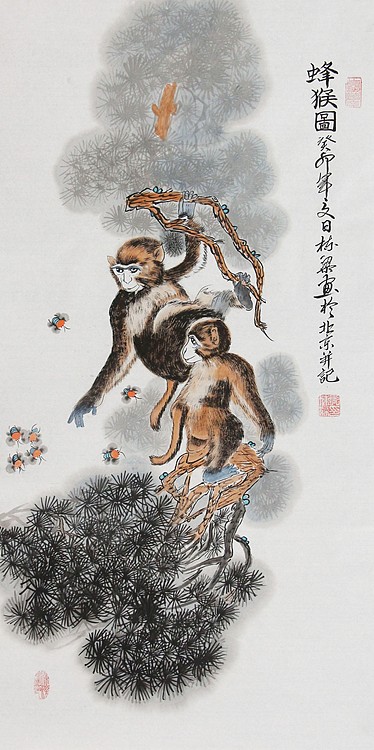 蜂猴圖
癸卯年文日栋梁画於北京并記